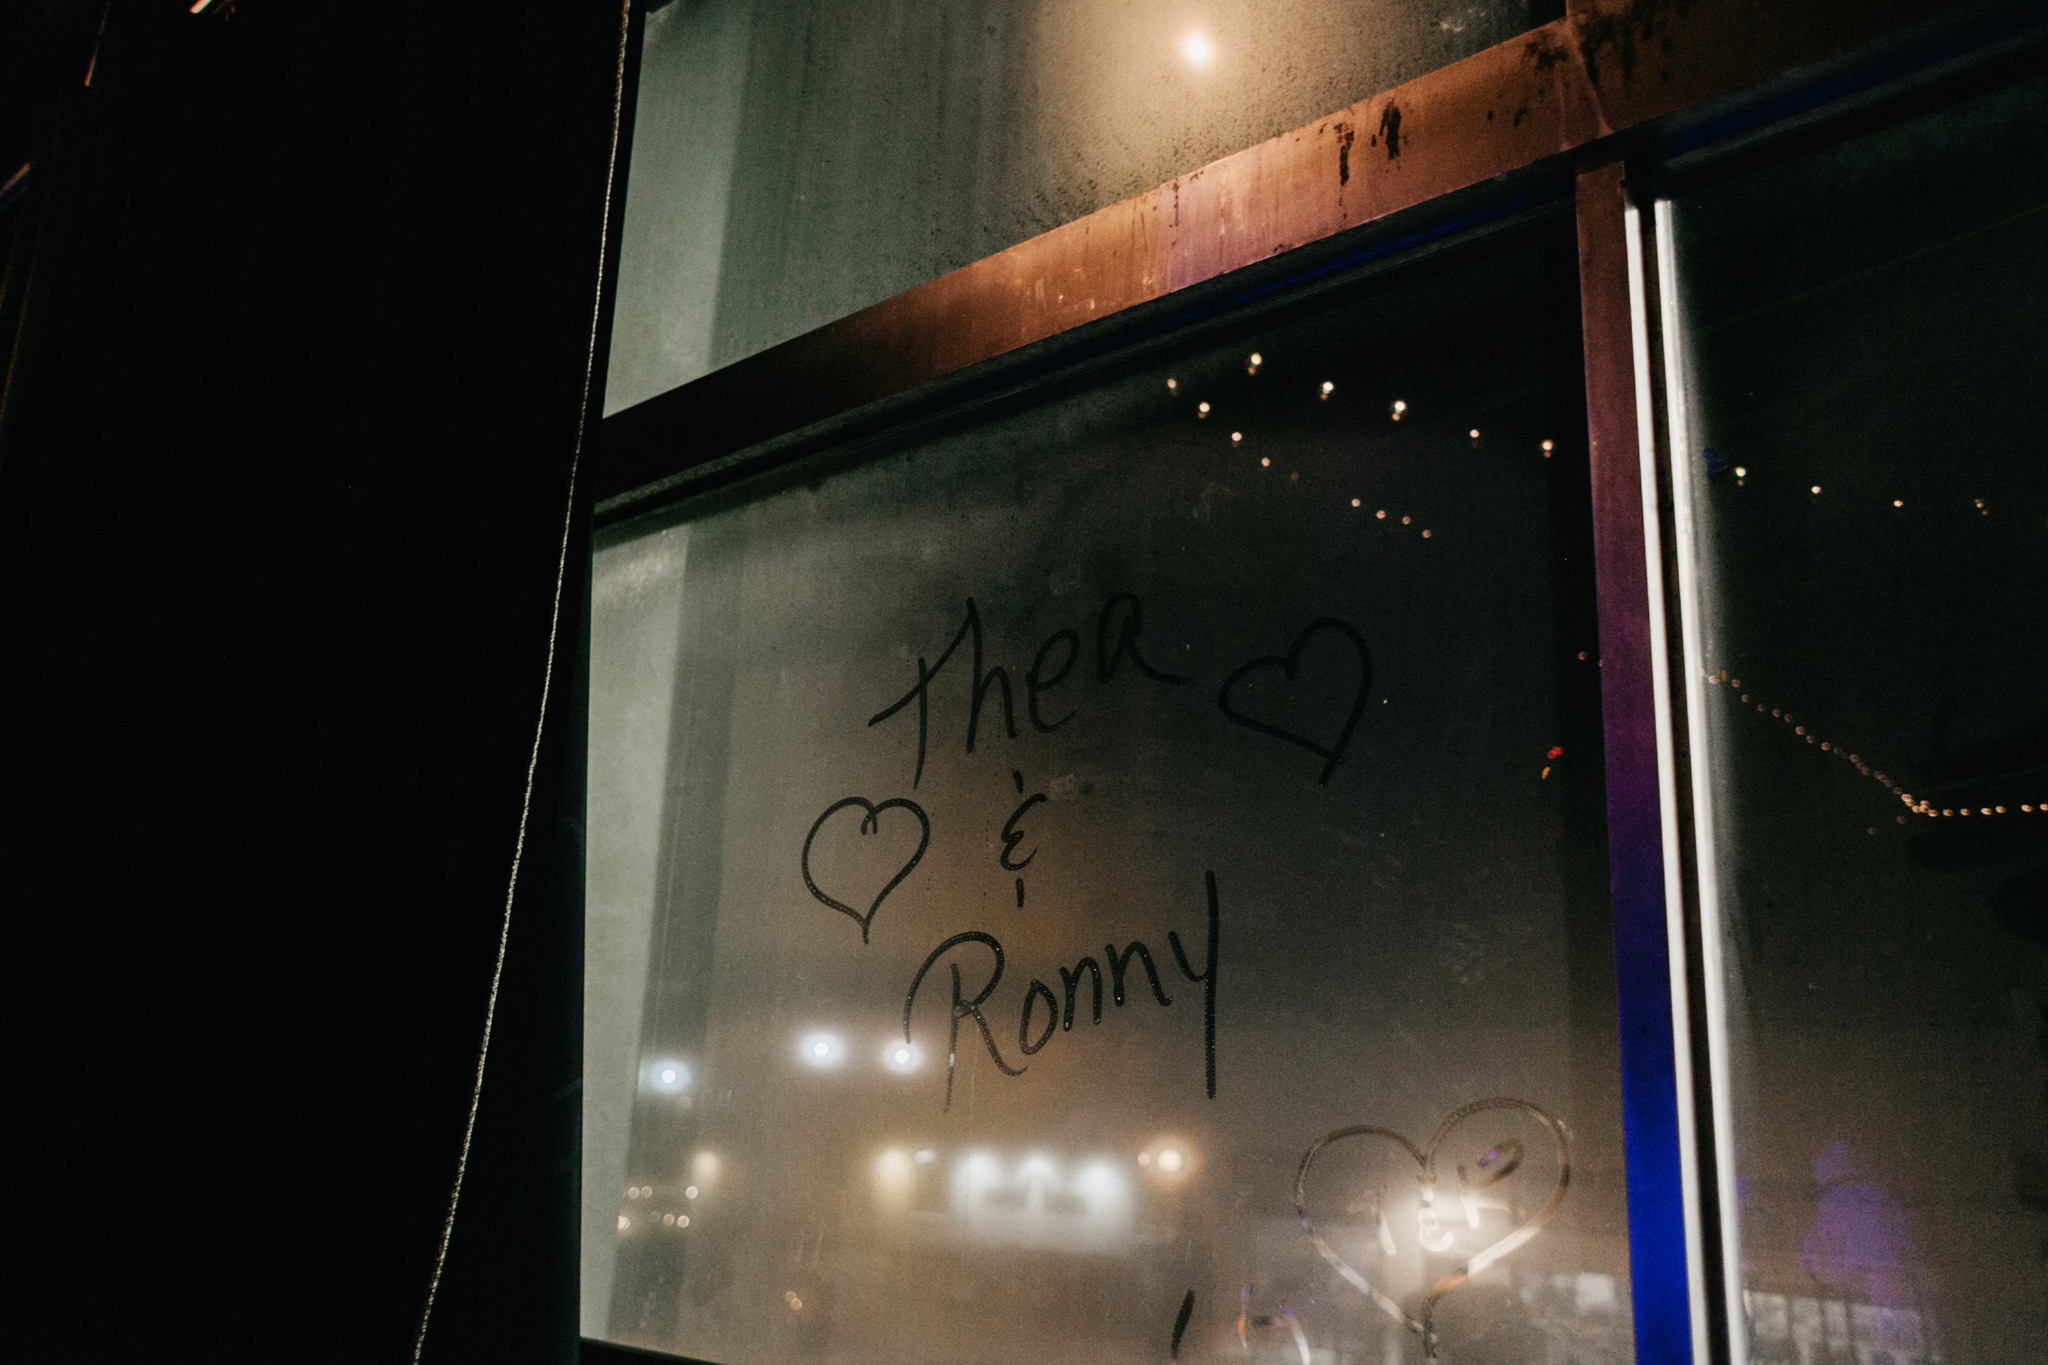 Thea
&
Ronny
T & R